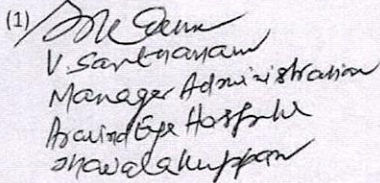 (1)
V. Santhanam
Manager Administration
Aravind Eye Hospital
Thavalakuppam